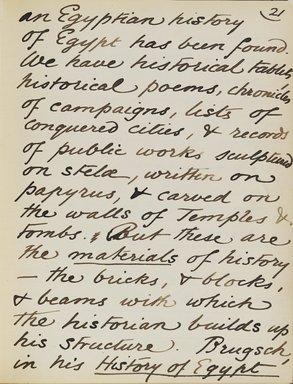 21
an Egyptian history
of Egypt has been found.
We have historical tablets,
historical poems, chronicles
of campaigns, lists of
conquered cities, & records
of public works sculptured
on stelæ, written on
papyrus, & carved on
the walls of Temples &
tombs. But these are
the materials of history
— the bricks, & blocks,
& beams with which
the historian builds up
his structure. Brugsch,
in his History of Egypt